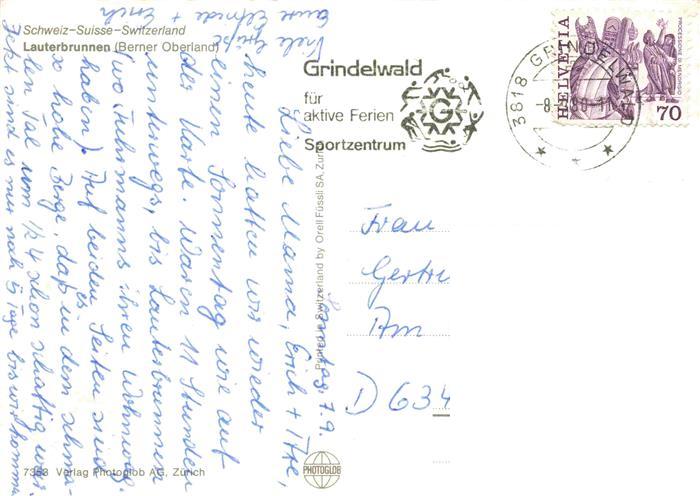 Schweiz-Suisse-Switzerland
Lauterbrunnen (Berner Oberland)
Grindelwald
für
aktive Ferien
Sportzentrum
G
3818 GRINDELWALD
HELVETIA
70
PROCESSIONI DI MENDRISIO
Sonntag 7.9.
Liebe Mama, Erich + Ilse,
heute hatten wir wieder
einen Sonnentag wie auf
der Karte. Waren 11 Stunden
unterwegs, bis Lauterbrunnen
(wo Fuhrmanns ihren Wohnwg.
haben). Auf beiden Seiten sind
so hohe Berge, daß es in dem schma-
len Tal um 1/2 4 schon schattig war.
Jetzt sind es nur noch 5 Tage bis wir komm
Viele Grüße
Eure Elfriede + Erich
Frau
Gertru
Am
D 634
Printed in Switzerland by Orell Füssli SA, Zürich
7353 Verlag Photoglob AG, Zürich
PHOTOGLOB